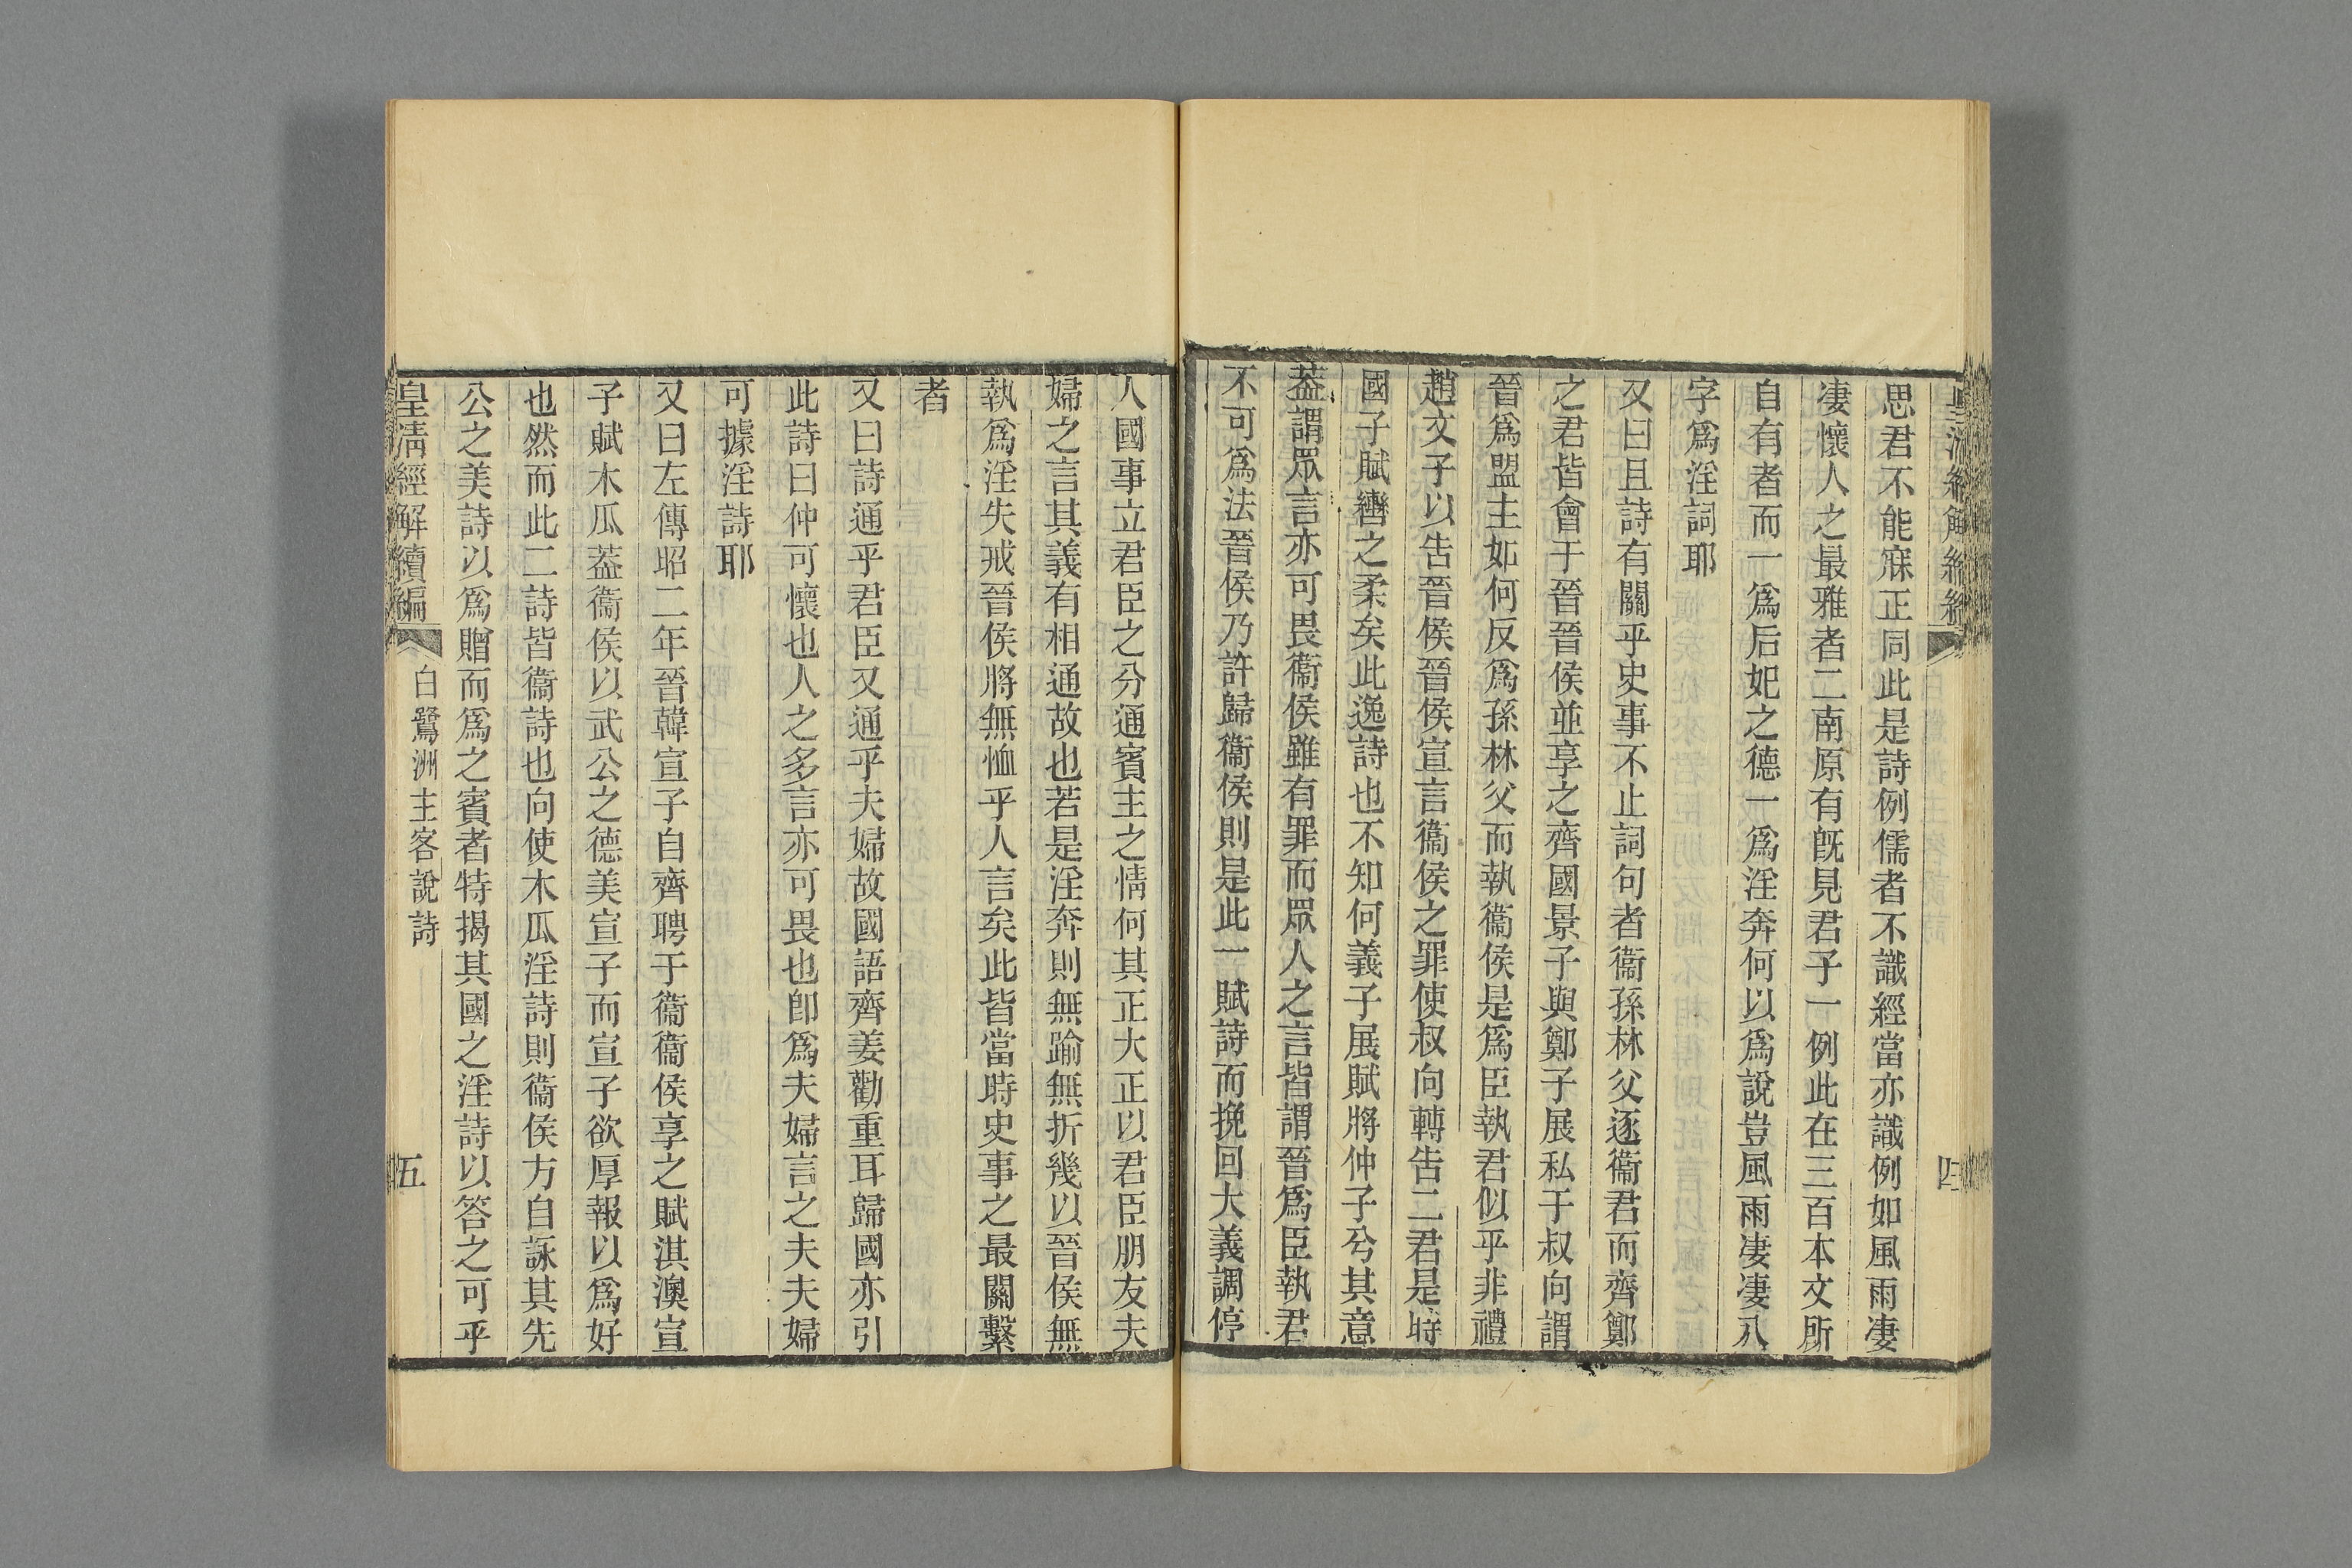 皇清經解續編
四
思君不能寐正同此是詩例儒者不識經當亦識例如風雨淒
淒懷人之最雅者二南原有旣見君子一例此在三百本文所
自有者而一爲后妃之德一爲淫奔何以爲說豈風雨淒淒八
字爲淫詞耶
又曰且詩有關乎史事不止詞句者衞孫林父逐衞君而齊鄭
之君皆會于晉晉侯並享之齊國景子與鄭子展私于叔向謂
晉爲盟主如何反爲孫林父而執衞侯是爲臣執君似乎非禮
趙文子以告晉侯晉侯宣言衞侯之罪使叔向轉告二君是時
國子賦轡之柔矣此逸詩也不知何義子展賦將仲子兮其意
葢謂眾言亦可畏衞侯雖有罪而眾人之言皆謂晉爲臣執君
不可爲法晉侯乃許歸衞侯則是此一賦詩而挽回大義調停
人國事立君臣之分通賓主之情何其正大正以君臣朋友夫
婦之言其義有相通故也若是淫奔則無踰無折幾以晉侯無
執爲淫失戒晉侯將無恤乎人言矣此皆當時史事之最關繫
者
又曰詩通乎君臣又通乎夫婦故國語齊姜勸重耳歸國亦引
此詩曰仲可懷也人之多言亦可畏也卽爲夫婦言之夫夫婦
可據淫詩耶
又曰左傳昭二年晉韓宣子自齊聘于衞衞侯享之賦淇澳宣
子賦木瓜葢衞侯以武公之德美宣子而宣子欲厚報以爲好
也然而此二詩皆衞詩也向使木瓜淫詩則衞侯方自詠其先
公之美詩以爲贈而爲之賓者特揭其國之淫詩以答之可乎
皇清經解續編
白鷺洲主客說詩
五